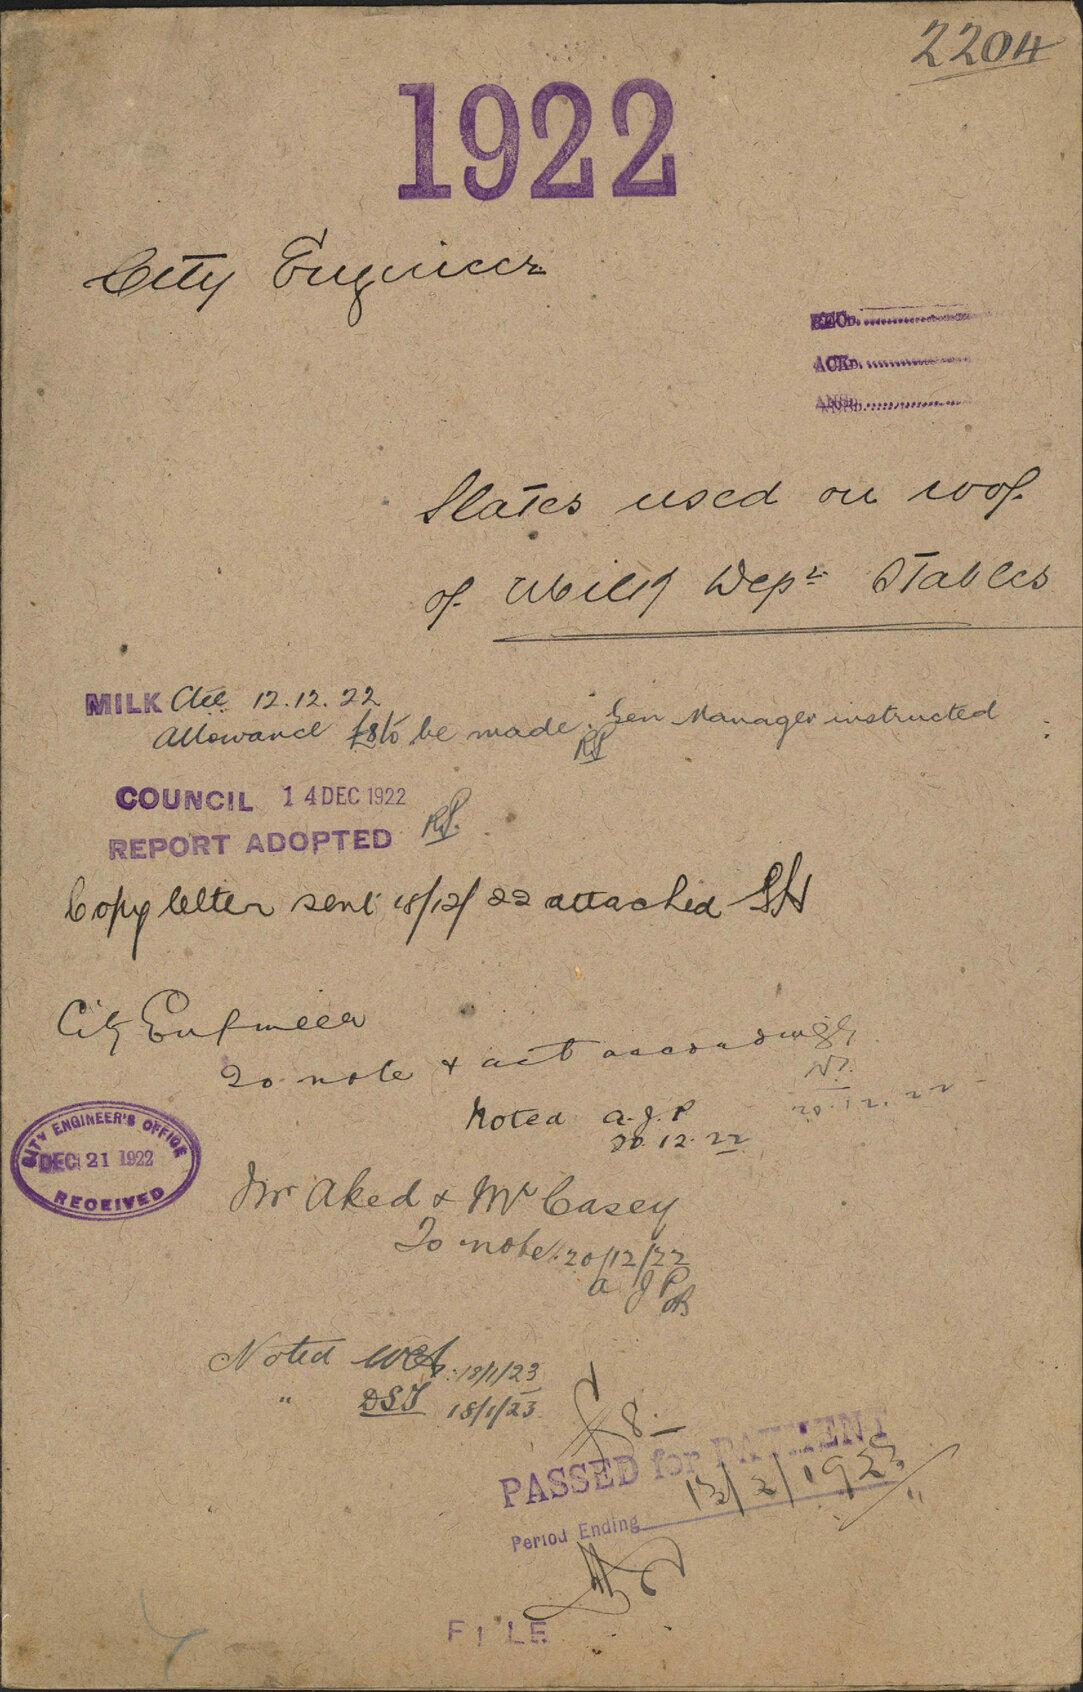 2204
1922
City Engineer
RECD.
ACKD.
ANSD.
Slates used on roof
of Milk Dept Stables
MILK Ctee 12.12.22
Allowance £8 to be made. Gen Manager instructed
COUNCIL 14 DEC 1922
REPORT ADOPTED
Copy letter sent 18/12/22 attached
City Engineer
To note & act accordingly
20.12.22
Noted A.J.P
20.12.22
CITY ENGINEER'S OFFICE
DEC 21 1922
RECEIVED
Mr Aked & Mr Casey
To note. 20/12/22
A J P
Noted WCA. 18/1/23
" DST 18/1/23
£8.-
PASSED for PAYMENT
Period Ending 13/2/1923
FILE